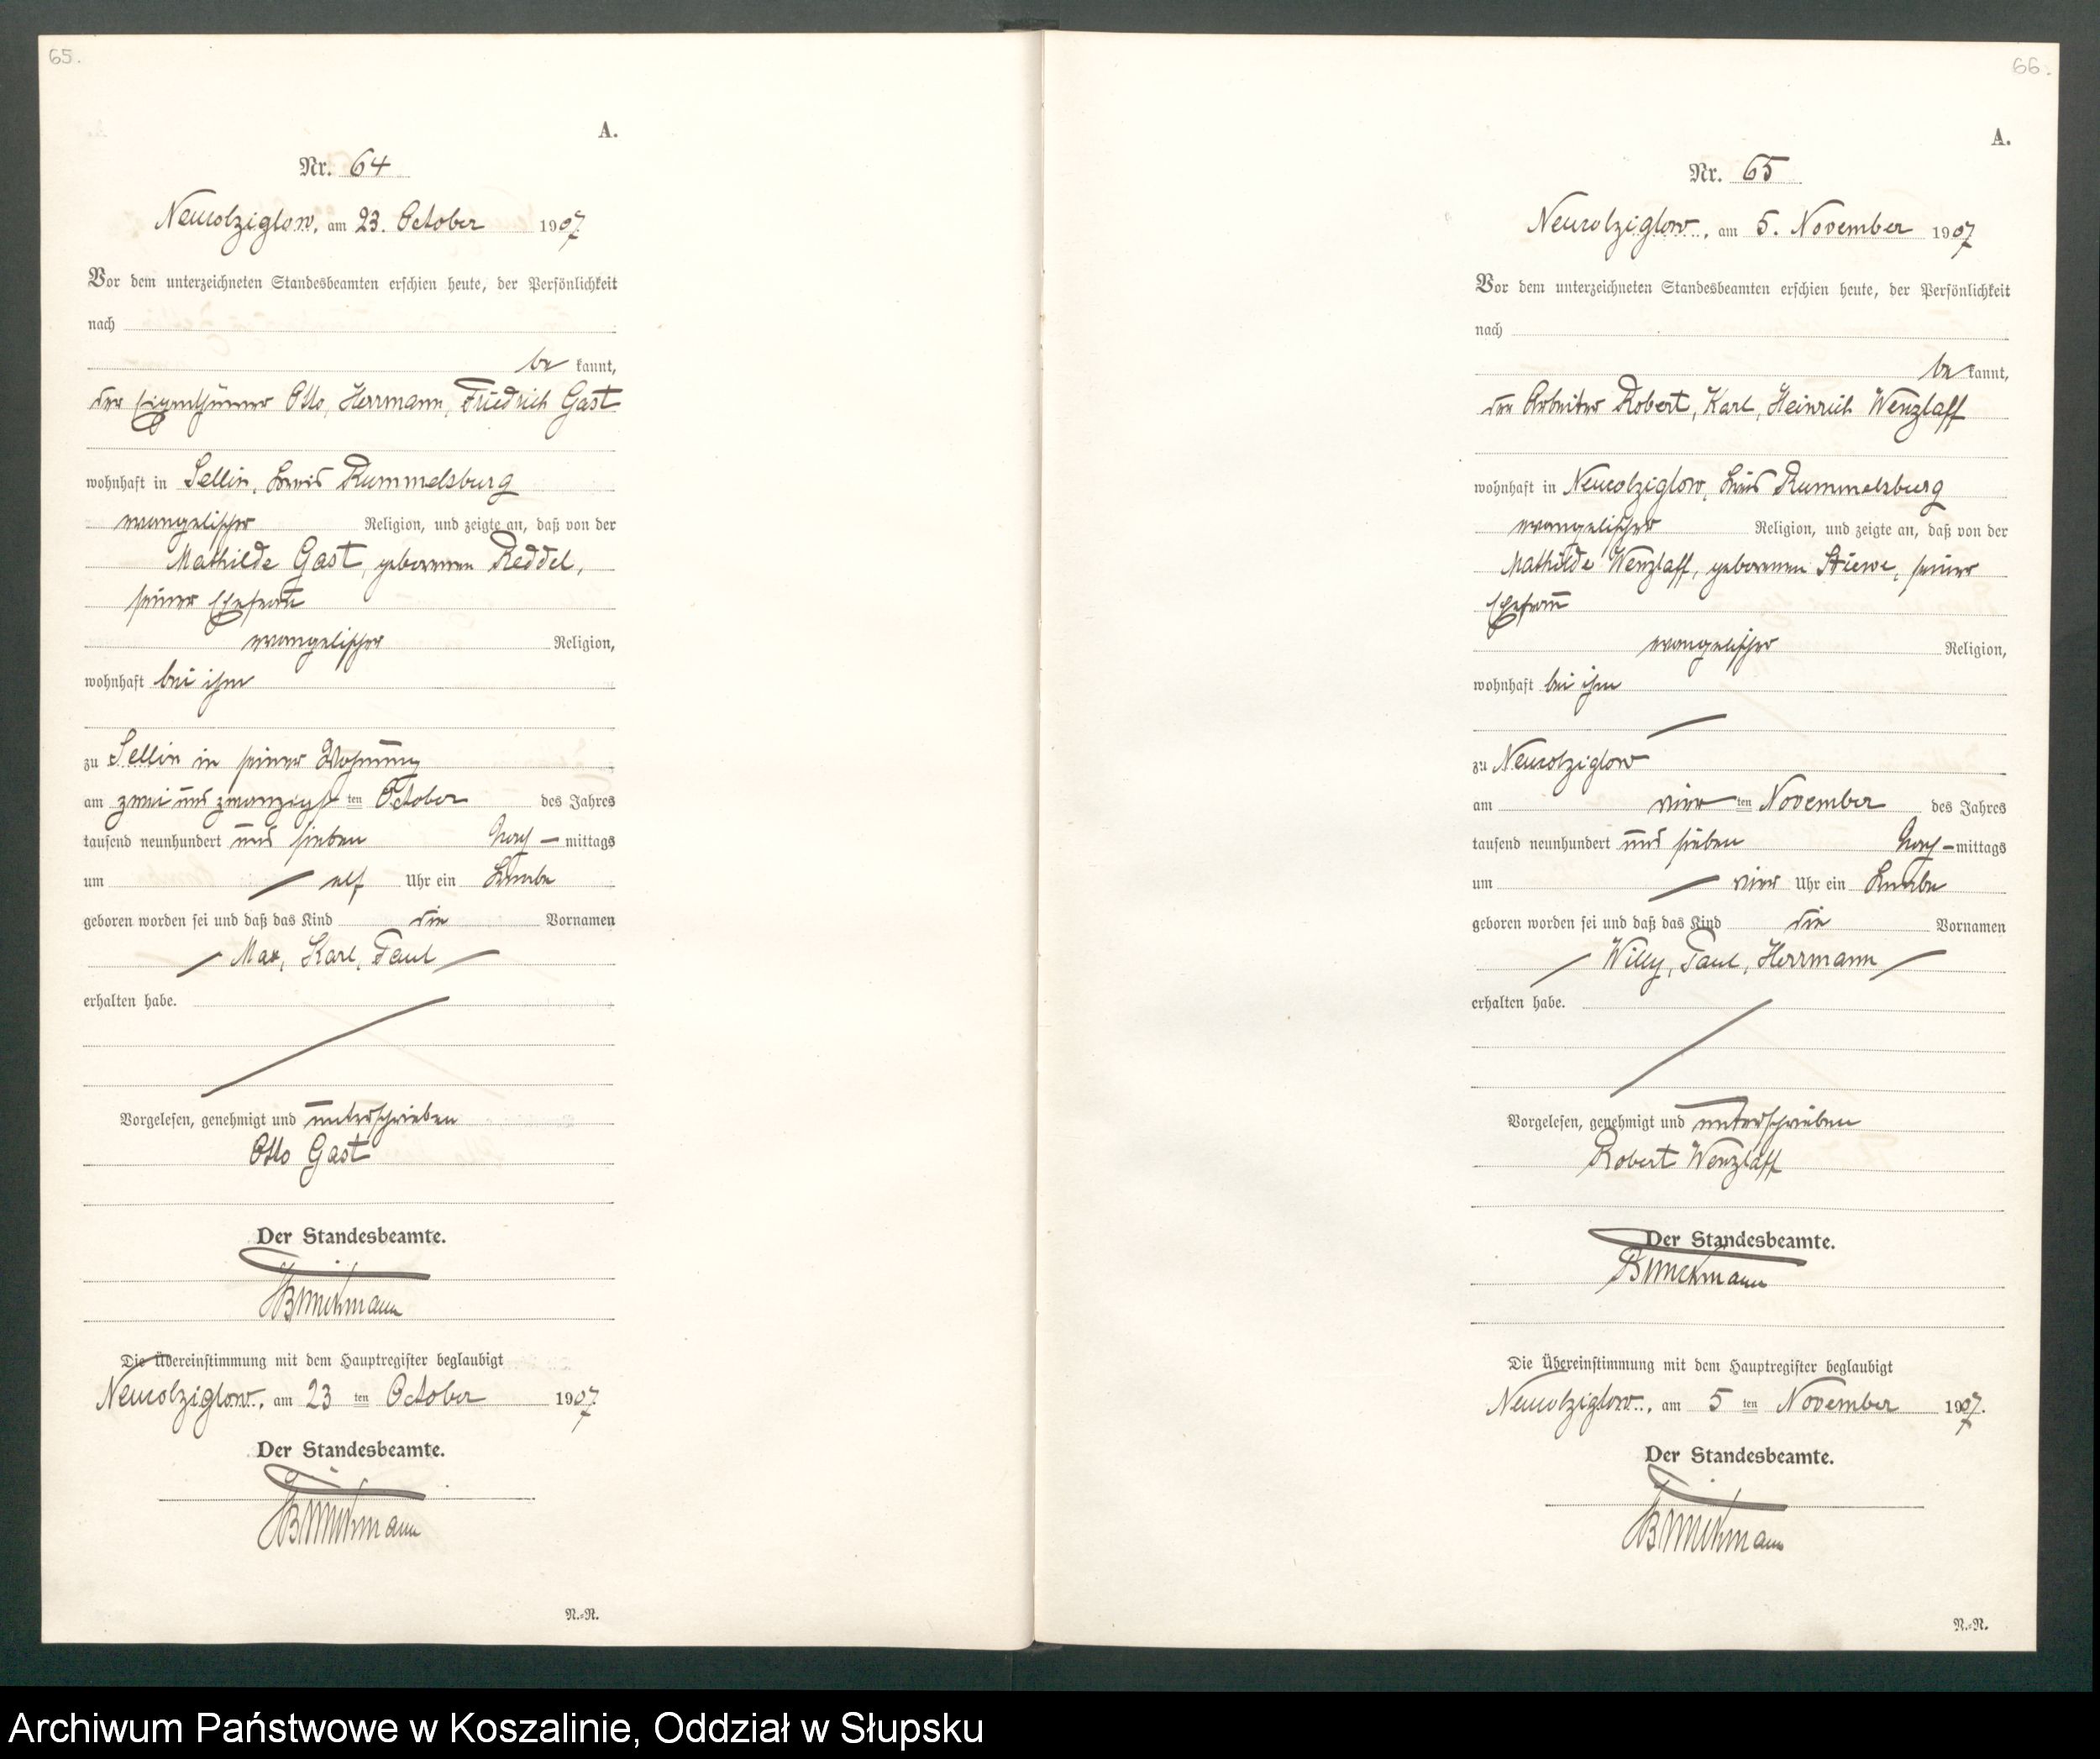 65.
A.
Nr. 64
Neukolziglow, am 23. October 1907
Vor dem unterzeichneten Standesbeamten erschien heute, der Persönlichkeit
nach
be kannt,
der Eigenthümer Otto, Herrmann, Friedrich Gast
wohnhaft in Sellin, Kreis Rummelsburg
evangelischer Religion, und zeigte an, daß von der
Mathilde Gast, geborenen Reddel,
seiner Ehefrau
evangelischer Religion,
wohnhaft bei ihm
zu Sellin in seiner Wohnung
am zwei und zwanzigsten October des Jahres
tausend neunhundert und sieben Nach-mittags
um elf Uhr ein Knabe
geboren worden sei und daß das Kind die Vornamen
Max, Karl, Paul
erhalten habe.
Vorgelesen, genehmigt und unterschrieben
Otto Gast
Der Standesbeamte.
Die Übereinstimmung mit dem Hauptregister beglaubigt
Neukolziglow, am 23 ten October 1907
Der Standesbeamte.
N.-N.
66.
A.
Nr. 65
Neukolziglow, am 5. November 1907
Vor dem unterzeichneten Standesbeamten erschien heute, der Persönlichkeit
nach
be kannt,
der Arbeiter Robert, Karl, Heinrich Wenzlaff
wohnhaft in Neukolziglow, Kreis Rummelsburg
evangelischer Religion, und zeigte an, daß von der
Mathilde Wenzlaff, geborenen Stiewe, seiner
Ehefrau
evangelischer Religion,
wohnhaft bei ihm
zu Neukolziglow
am vier ten November des Jahres
tausend neunhundert und sieben Nach-mittags
um vier Uhr ein Knabe
geboren worden sei und daß das Kind die Vornamen
Willy, Paul, Herrmann
erhalten habe.
Vorgelesen, genehmigt und unterschrieben
Robert Wenzlaff
Der Standesbeamte.
Die Übereinstimmung mit dem Hauptregister beglaubigt
Neukolziglow, am 5 ten November 1907.
Der Standesbeamte.
N.-N.
Archiwum Państwowe w Koszalinie, Oddział w Słupsku